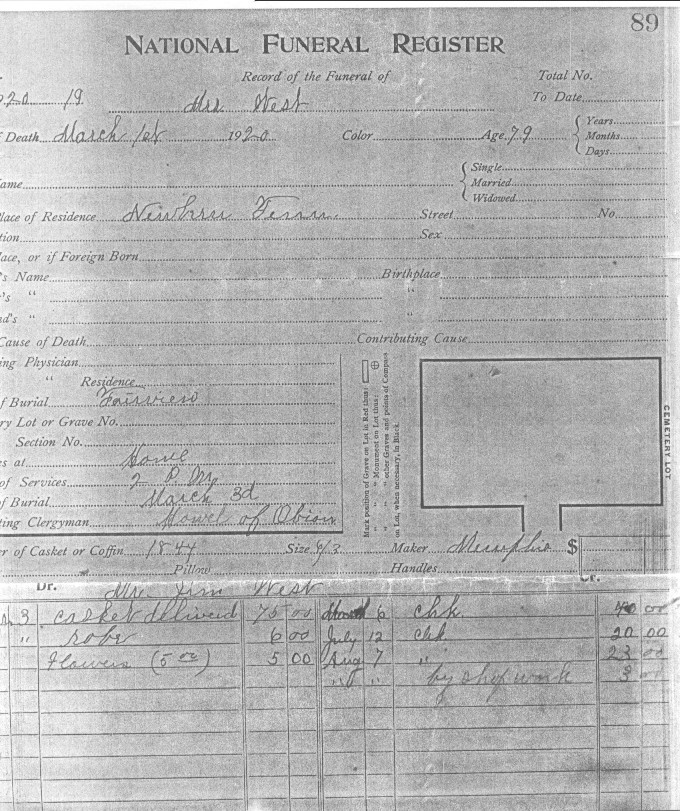 89
NATIONAL FUNERAL REGISTER
Record of the Funeral of
Total No.
20 19
Mrs West
To Date
Death March 1st 1920 Color Age 79 Years
Months
Days
ame Single
Married
Widowed
lace of Residence Newbern Tenn. Street No.
tion Sex
lace, or if Foreign Born
's Name Birthplace
's " "
nd's " "
Cause of Death Contributing Cause
ing Physician
" Residence
of Burial Fairview
ry Lot or Grave No.
Section No.
es at Home
of Services 2 P. M.
of Burial March 3d
ting Clergyman Howel of Obion
Mark position of Grave on Lot in Red thus:
" " Monument on Lot thus:
" " other Graves and points of Compass
on Lot, when necessary, in Black.
CEMETERY LOT
er of Casket or Coffin 1844 Size 6/3 Maker Memphis $
Pillow Handles
Dr. Mr. Jim West Cr.
3 casket delivered 75 00 March 6 chk 40 00
" robe 6 00 July 12 chk 20 00
Flowers (5 00) 5 00 Aug 7 " 23 00
" " by shop work 3 00